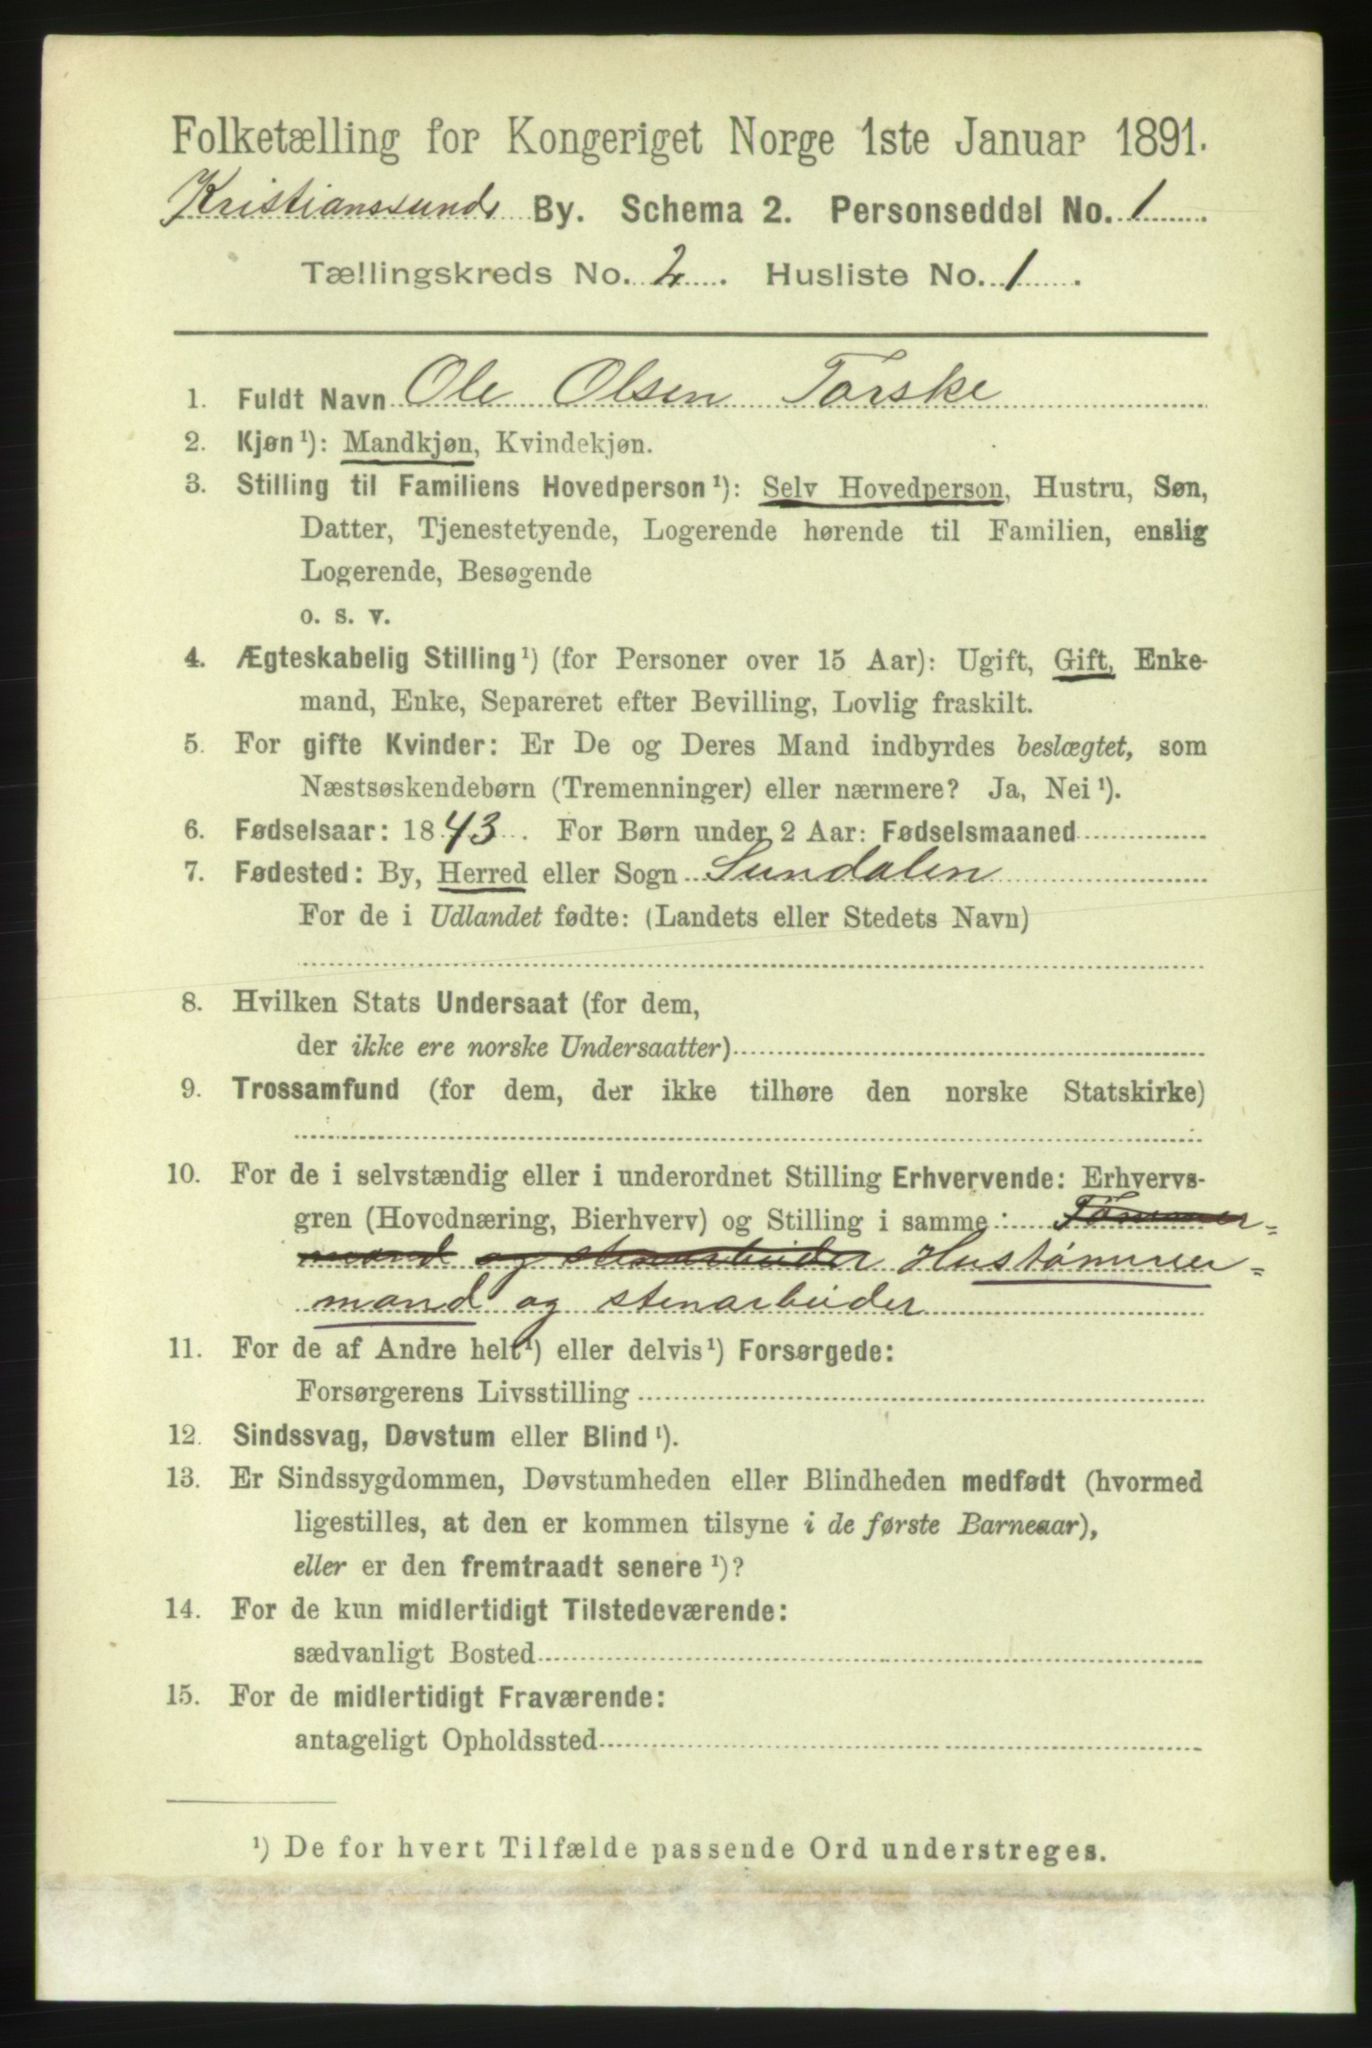 Folketælling for Kongeriget Norge 1ste Januar 1891.
Kristianssunds By. Schema 2. Personseddel No. 1
Tællingskreds No. 2. Husliste No. 1.
1. Fuldt Navn Ole Olsen Torske
2. Kjøn¹): Mandkjøn, Kvindekjøn.
3. Stilling til Familiens Hovedperson¹): Selv Hovedperson, Hustru, Søn,
Datter, Tjenestetyende, Logerende hørende til Familien, enslig
Logerende, Besøgende
o. s. v.
4. Ægteskabelig Stilling¹) (for Personer over 15 Aar): Ugift, Gift, Enke-
mand, Enke, Separeret efter Bevilling, Lovlig fraskilt.
5. For gifte Kvinder: Er De og Deres Mand indbyrdes beslægtet, som
Næstsøskendebørn (Tremenninger) eller nærmere? Ja, Nei¹).
6. Fødselsaar: 1843. For Børn under 2 Aar: Fødselsmaaned
7. Fødested: By, Herred eller Sogn Sundalen
For de i Udlandet fødte: (Landets eller Stedets Navn)
8. Hvilken Stats Undersaat (for dem,
der ikke ere norske Undersaatter)
9. Trossamfund (for dem, der ikke tilhøre den norske Statskirke)
10. For de i selvstændig eller i underordnet Stilling Erhvervende: Erhvervs-
gren (Hovednæring, Bierhverv) og Stilling i samme: Tømmer=
mand og stenarbeider Hustømmer=
mand og stenarbeider
11. For de af Andre helt¹) eller delvis¹) Forsørgede:
Forsørgerens Livsstilling
12. Sindssvag, Døvstum eller Blind¹).
13. Er Sindssygdommen, Døvstumheden eller Blindheden medfødt (hvormed
ligestilles, at den er kommen tilsyne i de første Barneaar),
eller er den fremtraadt senere¹)?
14. For de kun midlertidigt Tilstedeværende:
sædvanligt Bosted
15. For de midlertidigt Fraværende:
antageligt Opholdssted
¹) De for hvert Tilfælde passende Ord understreges.